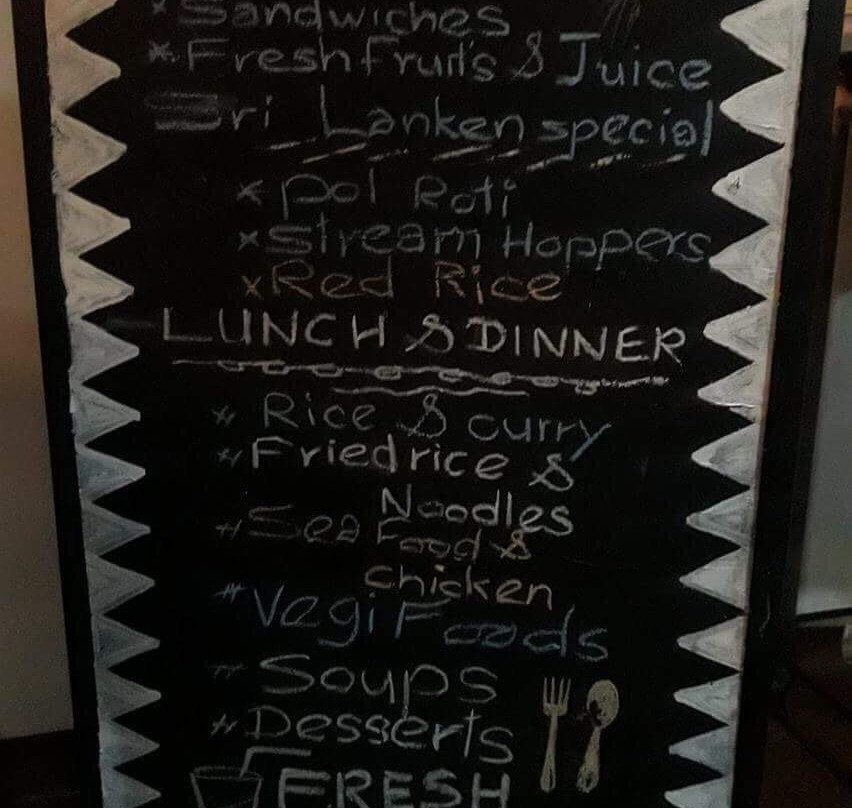 * Sandwiches
* Fresh fruits & Juice
Sri Lanken special
* Pol Roti
* Stream Hoppers
* Red Rice
LUNCH & DINNER
* Rice & curry
* Fried rice &
Noodles
* Sea Food &
Chicken
* Vegi Foods
* Soups
* Desserts
FRESH